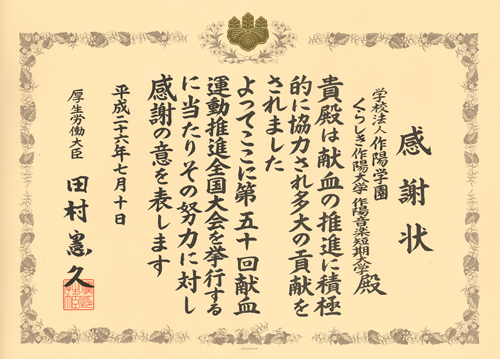 感謝状
学校法人 作陽学園
くらしき作陽大学 作陽音楽短期大学 殿
貴殿は献血の推進に積極
的に協力され多大の貢献を
されました
よってここに第五十回献血
運動推進全国大会を挙行する
に当たりその努力に対し
感謝の意を表します
平成二十六年七月十日
厚生労働大臣 田村憲久